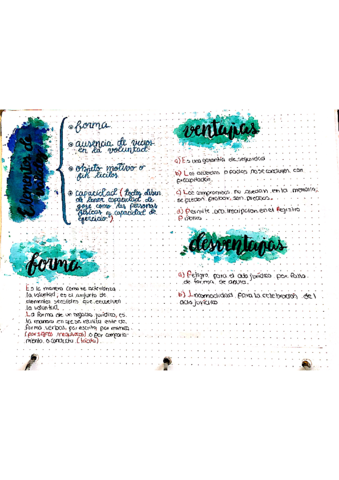 Elementos de
• forma
• ausencia de vicios
en la voluntad
• objeto motivo o
fin licitos
• capacidad (todos deben
de tener capacidad de
goze como las personas
fisicas y capacidad de
ejercicio)
ventajas
a) Es una garantía de seguridad
b) Los acuerdos o pactos no se con
precipitación.
c) Los compromisos no quedan en la memoria,
se pueden precisar, son precisos.
d) Permite una inscripción en el Registro
Público
forma.
Es la manera como se exterioriza
la voluntad, es el conjunto de
elementos sensibles que envuelven
la voluntad.
La forma de un negocio jurídico, es
la manera en que se realiza este de
forma verbal, por escrito por mimica
(por signos inequívocos) o por comporta-
miento o conducta (tácita)
desventajas
a) Peligro para el acto jurídico por falta
de forma se anula.
b) Incomodidad para la celebración del
acto jurídico